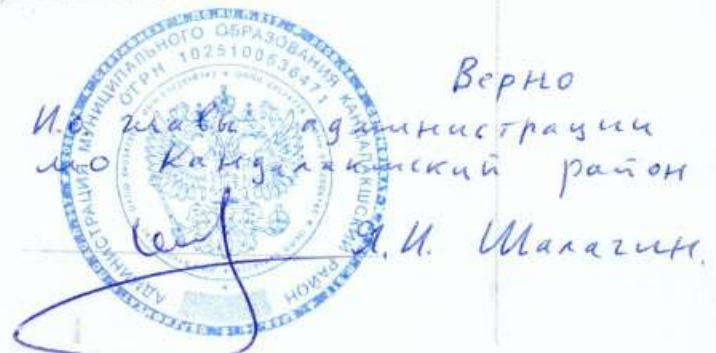 АДМИНИСТРАЦИЯ МУНИЦИПАЛЬНОГО ОБРАЗОВАНИЯ КАНДАЛАКШСКИЙ РАЙОН
ОГРН 1025100536471
Верно
И.о главы администрации
мо Кандалакшский район
А.И. Шалагин.